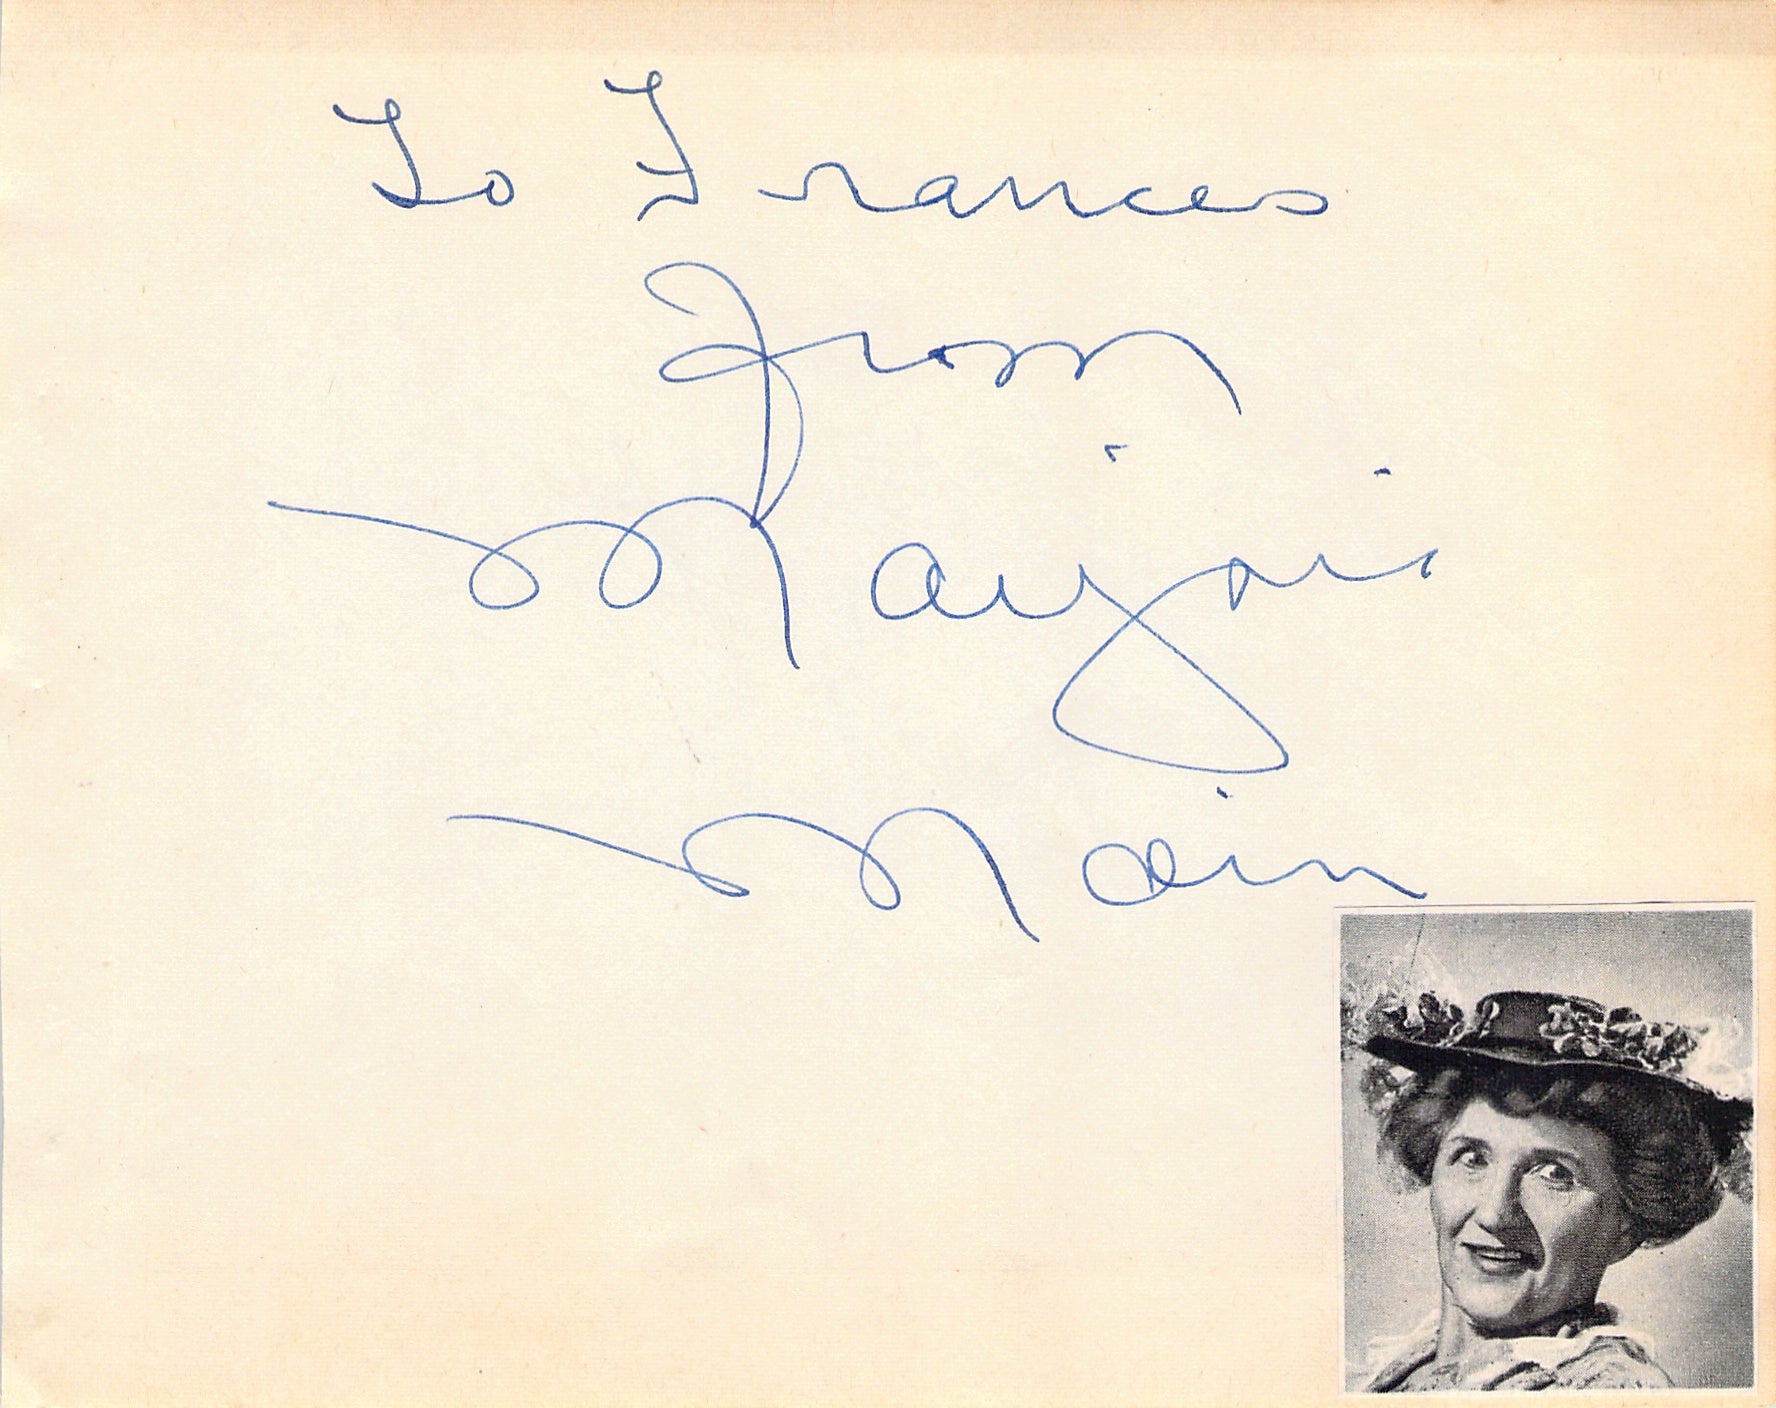 To Frances
From
Marjorie
Main